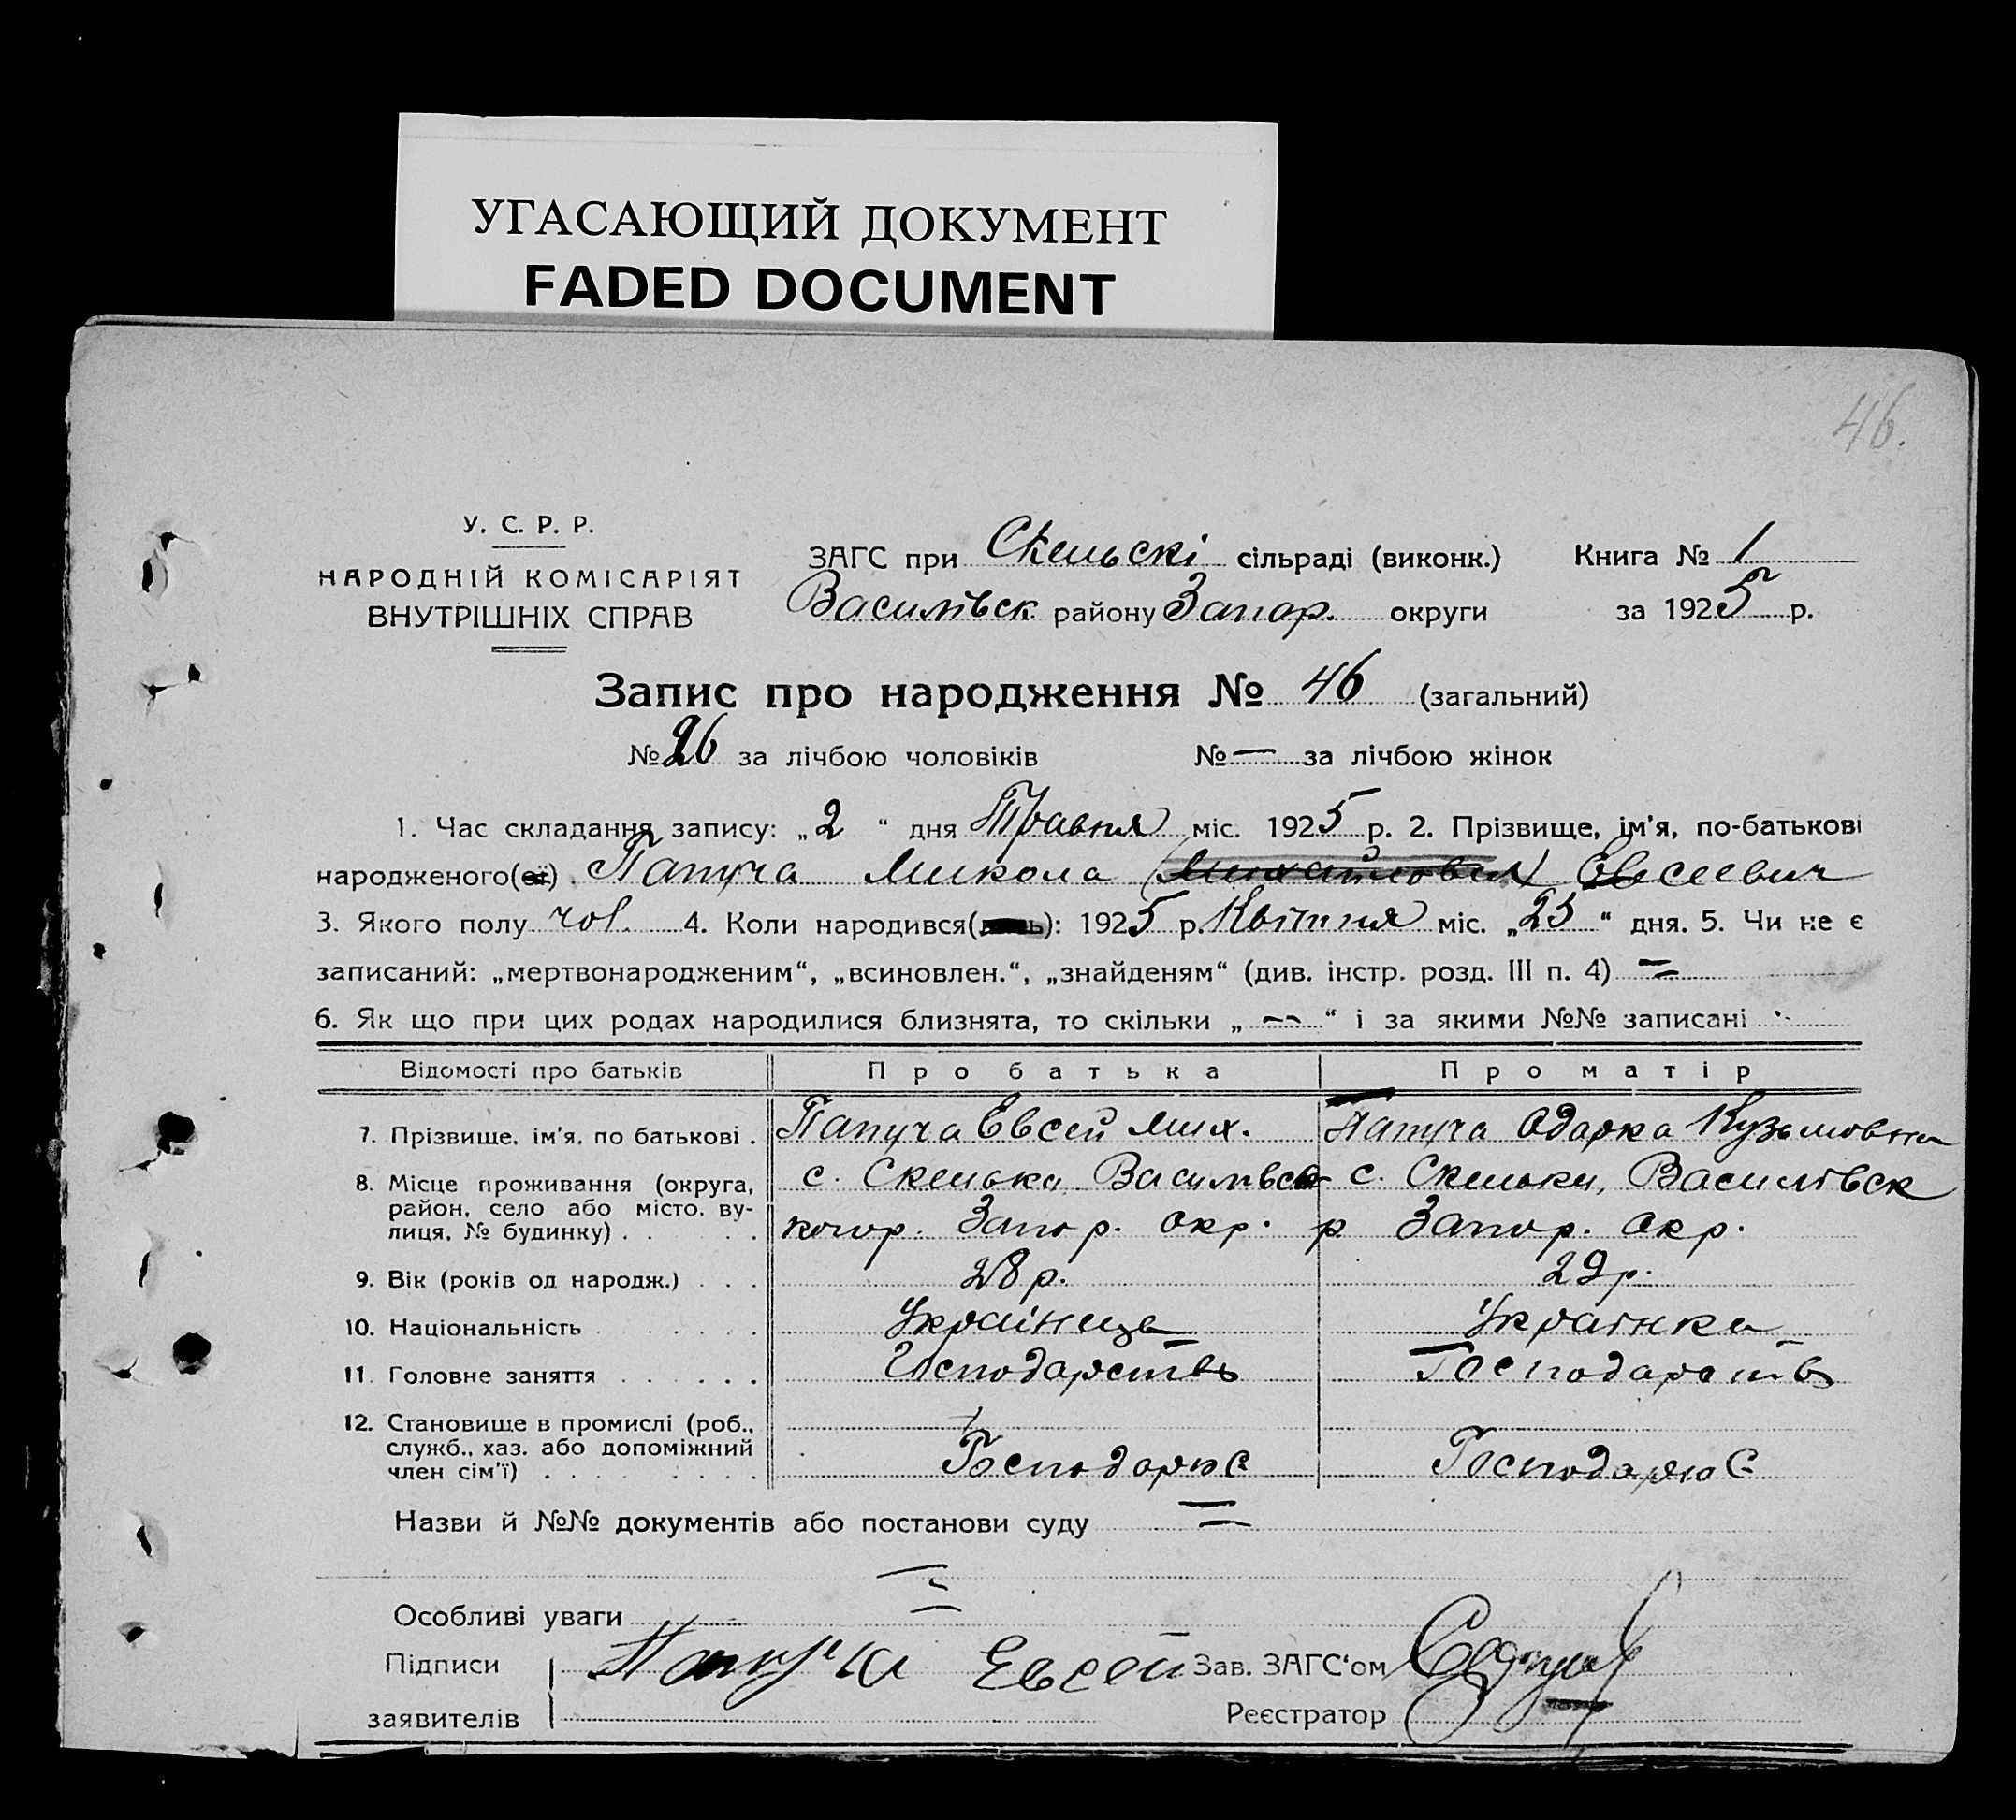 УГАСАЮЩИЙ ДОКУМЕНТ
FADED DOCUMENT
46.
У. С. Р. Р.
НАРОДНІЙ КОМІСАРІЯТ
ВНУТРІШНІХ СПРАВ
ЗАГС при Скельскі сільраді (виконк.) Книга № 1
Василівск району Запор. округи за 1925 р.
Запис про народження № 46 (загальний)
№ 26 за лічбою чоловіків № — за лічбою жінок
1. Час складання запису: „2“ дня Травня міс. 1925 р. 2. Прізвище, ім'я, по-батькові
народженого(ої) Папуча Микола (Михайлович) Овсеевич
3. Якого полу чол. 4. Коли народився( ): 1925 р. Квітня міс. „25“ дня. 5. Чи не є
записаний: „мертвонародженим“, „всиновлен.“, „знайденям“ (див. інстр. розд. III п. 4) =
6. Як що при цих родах народилися близнята, то скільки „ — “ і за якими №№ записані
Відомості про батьків Про батька Про матір
7. Прізвище, ім'я, по батькові . Папуча Евсей Мих. Папуча Одарка Кузьмовна
8. Місце проживання (округа, район, село або місто, вулиця, № будинку) . . с. Скельки Василівськ Запор. окр. с. Скельки, Василівск р Запор. окр.
9. Вік (років од народж.) . . . 28 р. 29 р.
10. Національність Українець Українка
11. Головне заняття Господарств Господарств
12. Становище в промислі (роб., служб., хаз. або допоміжний член сім'ї) Господарює Господарює
Назви й №№ документів або постанови суду =
Особливі уваги =
Підписи Папуча Евсей Зав. ЗАГС'ом
заявителів Реєстратор